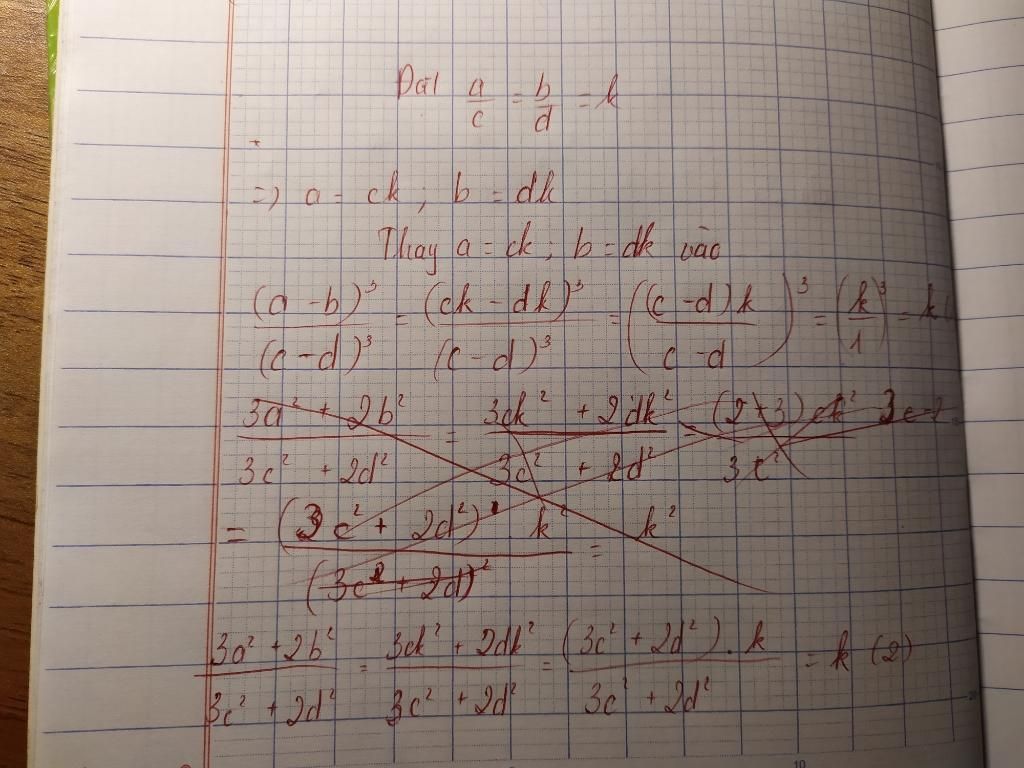 Đặt a/c = b/d = k
=> a = ck ; b = dk
Thay a = ck ; b = dk vào
(a - b)³/(c - d)³ = (ck - dk)³/(c - d)³ = ((c - d)k/(c - d))³ = (k/1)³ = k
3a² + 2b²/3c² + 2d² = 3ck² + 2dk²/3c² + 2d² =
= (3c² + 2d²) . k²/(3c² + 2d)² = k²
3a² + 2b²/3c² + 2d² = 3ck² + 2dk²/3c² + 2d² = (3c² + 2d²) . k/3c² + 2d² = k (2)